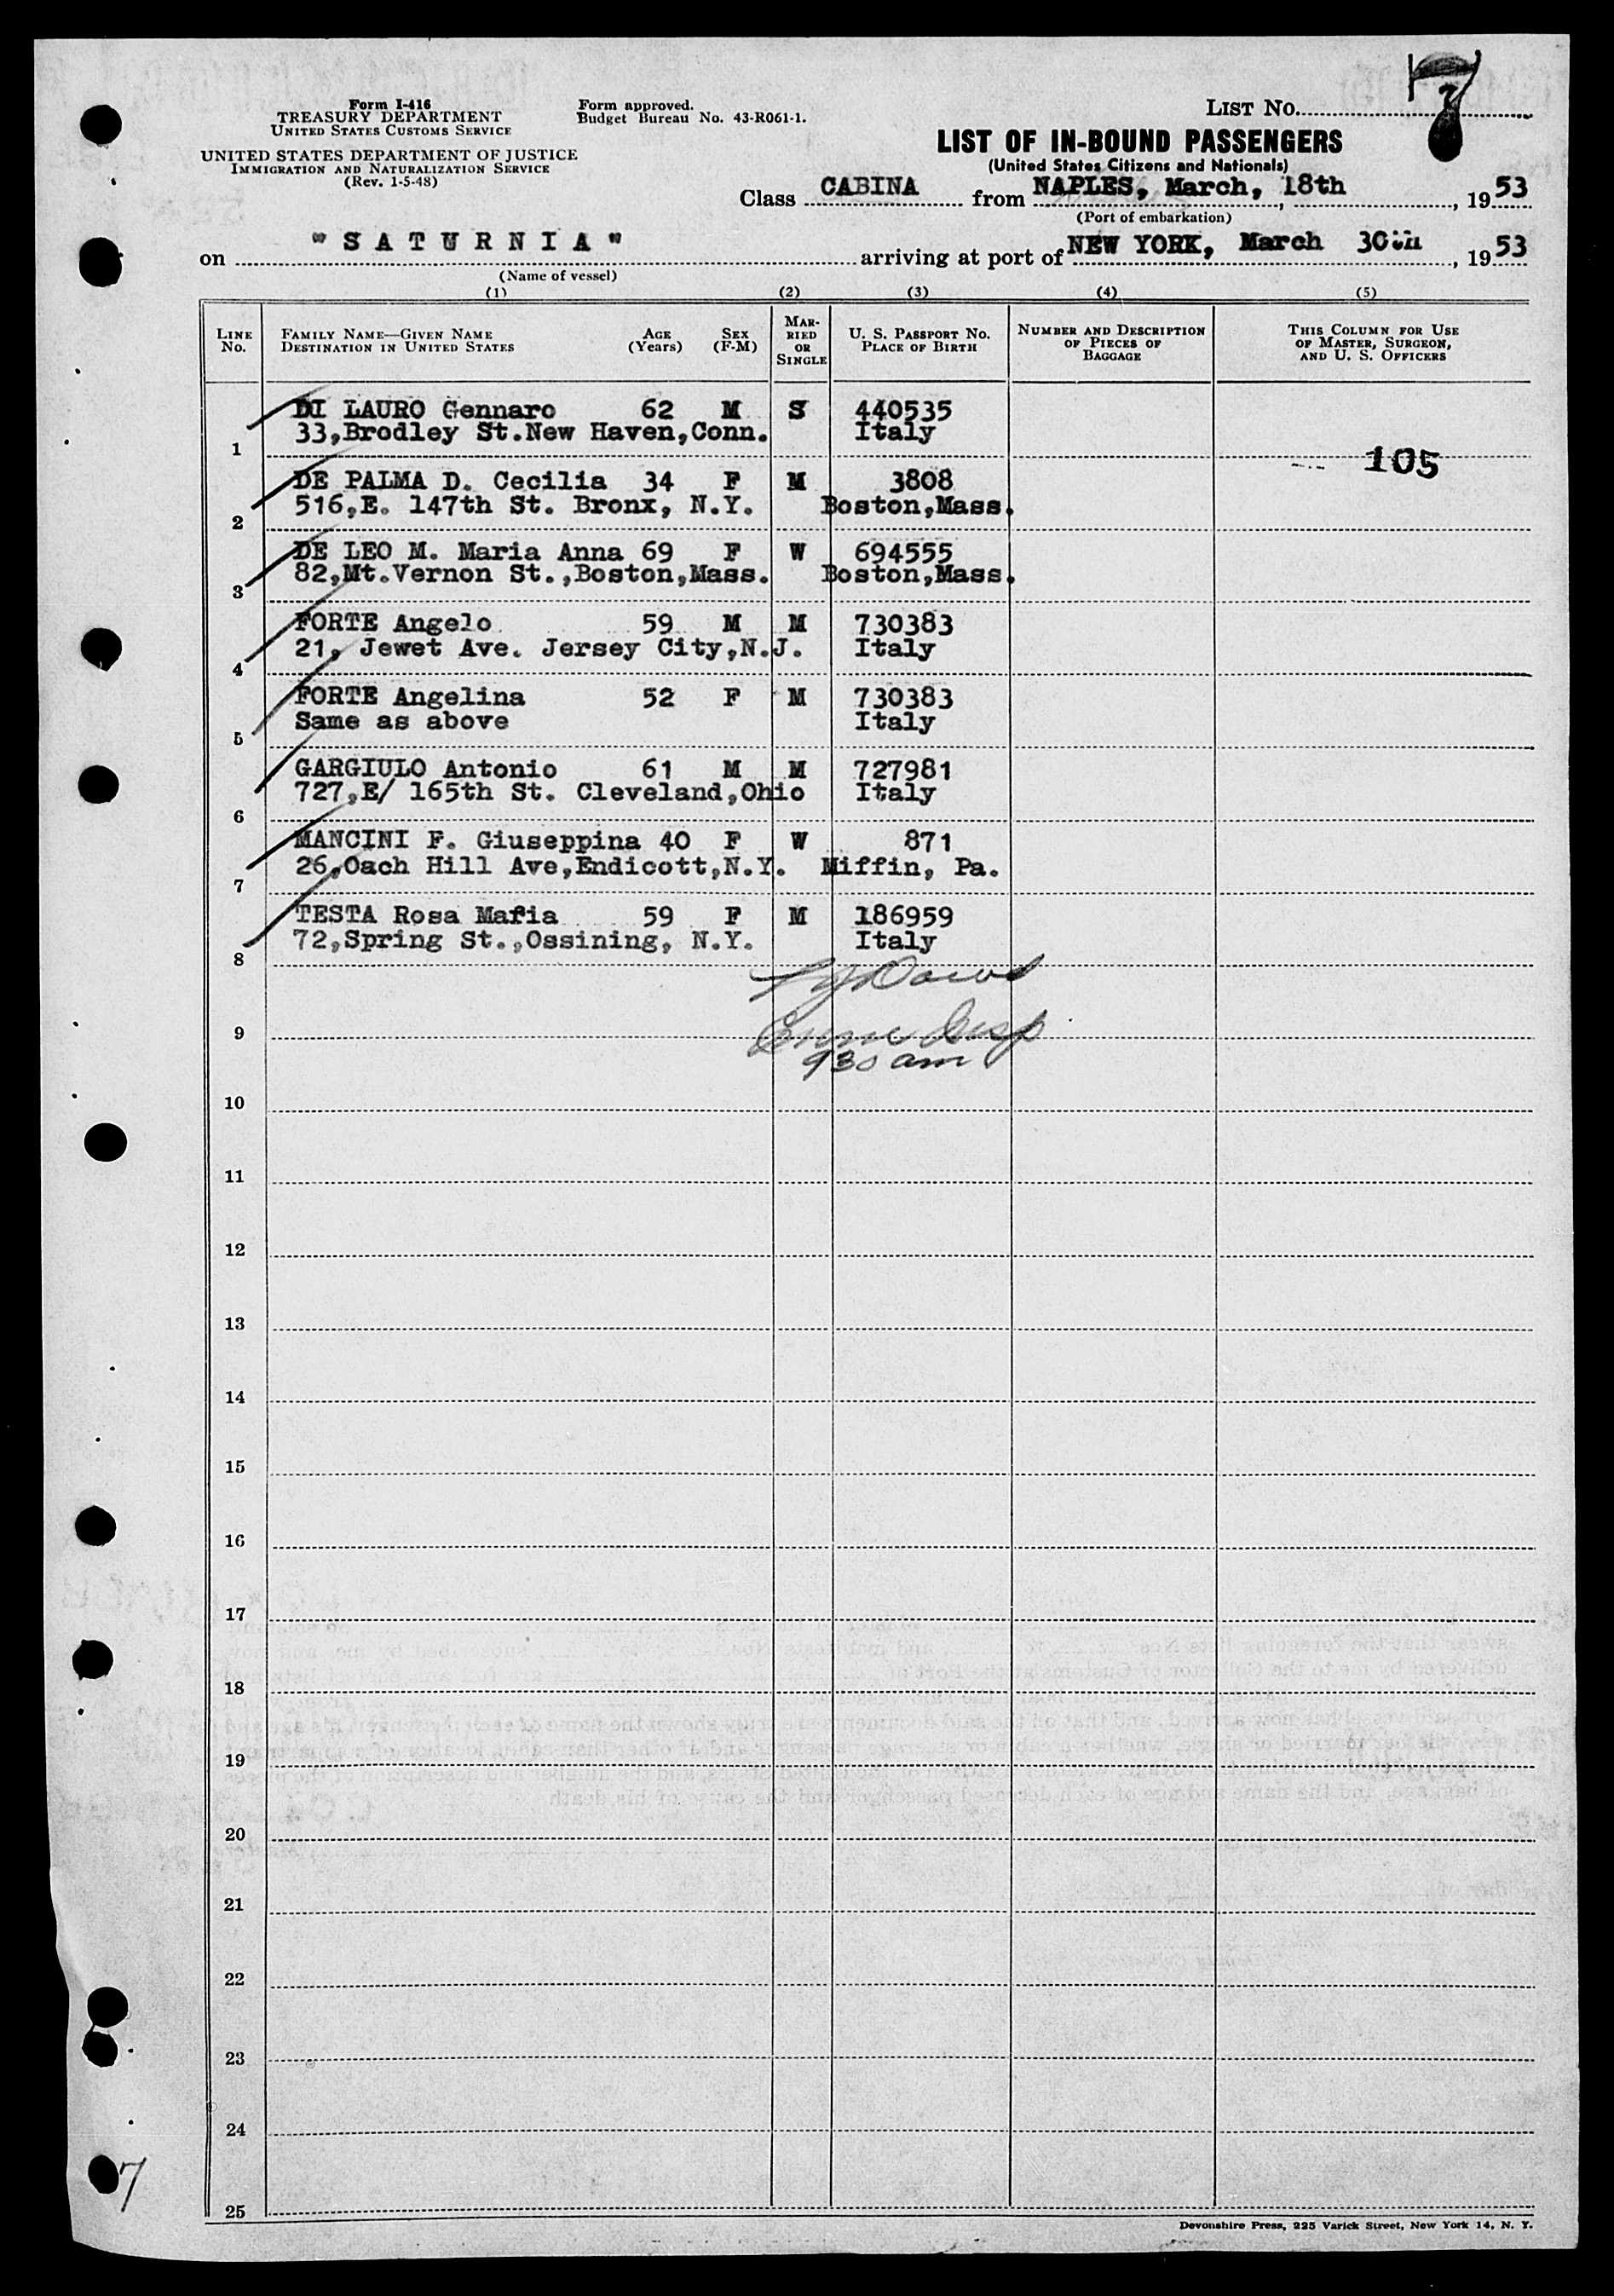 7
Form I-416
TREASURY DEPARTMENT
UNITED STATES CUSTOMS SERVICE
UNITED STATES DEPARTMENT OF JUSTICE
IMMIGRATION AND NATURALIZATION SERVICE
(Rev. 1-5-48)
Form approved.
Budget Bureau No. 43-R061-1.
LIST NO.
LIST OF IN-BOUND PASSENGERS
(United States Citizens and Nationals)
Class CABINA from NAPLES, March, 18th, 1953
(Port of embarkation)
on "SATURNIA" arriving at port of NEW YORK, March 30th, 1953
(Name of vessel)
(1) (2) (3) (4) (5)
LINE No. FAMILY NAME—GIVEN NAME DESTINATION IN UNITED STATES AGE (Years) SEX (F-M) MARRIED OR SINGLE U. S. PASSPORT NO. PLACE OF BIRTH NUMBER AND DESCRIPTION OF PIECES OF BAGGAGE THIS COLUMN FOR USE OF MASTER, SURGEON, AND U. S. OFFICERS
DI LAURO Gennaro 62 M S 440535
1 33,Brodley St.New Haven,Conn. Italy
105
DE PALMA D. Cecilia 34 F M 3808
2 516,E. 147th St. Bronx, N.Y. Boston,Mass.
DE LEO M. Maria Anna 69 F W 694555
3 82,Mt.Vernon St.,Boston,Mass. Boston,Mass.
FORTE Angelo 59 M M 730383
4 21, Jewet Ave. Jersey City,N.J. Italy
FORTE Angelina 52 F M 730383
5 Same as above Italy
GARGIULO Antonio 61 M M 727981
6 727,E/ 165th St. Cleveland,Ohio Italy
MANCINI F. Giuseppina 40 F W 871
7 26,Oach Hill Ave,Endicott,N.Y. Miffin, Pa.
TESTA Rosa Maria 59 F M 186959
8 72,Spring St.,Ossining, N.Y. Italy
9
930 am
10
11
12
13
14
15
16
17
18
19
20
21
22
23
24
7
25
Devonshire Press, 225 Varick Street, New York 14, N. Y.